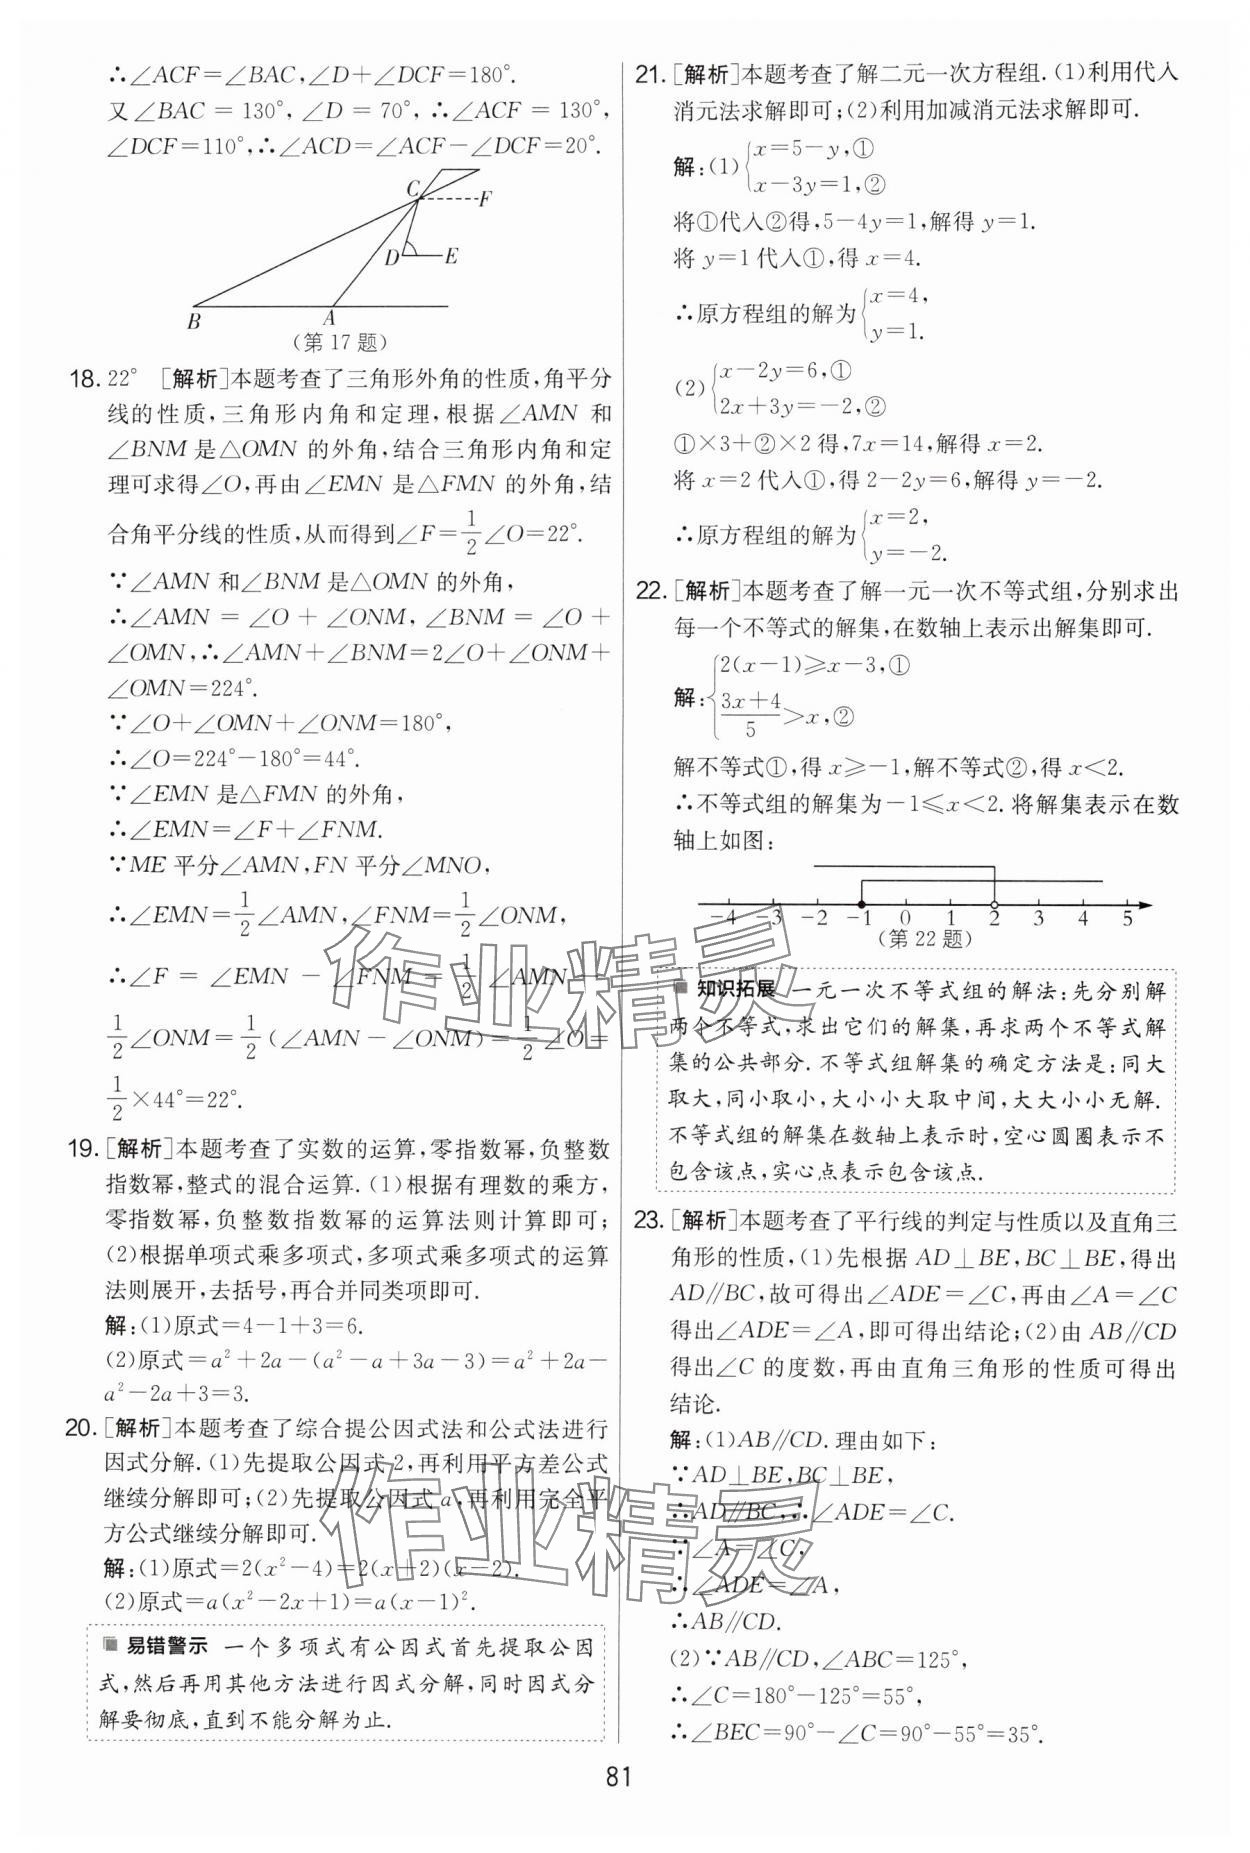 ∴∠ACF=∠BAC,∠D+∠DCF=180°.
又∠BAC=130°,∠D=70°,∴∠ACF=130°,
∠DCF=110°,∴∠ACD=∠ACF-∠DCF=20°.
C
F
D
E
B
A
(第17题)
18. 22° [解析]本题考查了三角形外角的性质,角平分
线的性质,三角形内角和定理,根据∠AMN 和
∠BNM 是△OMN 的外角,结合三角形内角和定
理可求得∠O,再由∠EMN 是△FMN 的外角,结
合角平分线的性质,从而得到∠F=1/2∠O=22°.
∵∠AMN 和∠BNM 是△OMN 的外角,
∴∠AMN=∠O+∠ONM,∠BNM=∠O+
∠OMN,∴∠AMN+∠BNM=2∠O+∠ONM+
∠OMN=224°.
∵∠O+∠OMN+∠ONM=180°,
∴∠O=224°-180°=44°.
∵∠EMN 是△FMN 的外角,
∴∠EMN=∠F+∠FNM.
∵ME 平分∠AMN,FN 平分∠MNO,
∴∠EMN=1/2∠AMN,∠FNM=1/2∠ONM,
∴∠F=∠EMN-∠FNM=1/2∠AMN-
1/2∠ONM=1/2(∠AMN-∠ONM)=1/2∠O=
1/2×44°=22°.
19. [解析]本题考查了实数的运算,零指数幂,负整数
指数幂,整式的混合运算.(1)根据有理数的乘方,
零指数幂,负整数指数幂的运算法则计算即可;
(2)根据单项式乘多项式,多项式乘多项式的运算
法则展开,去括号,再合并同类项即可.
解:(1)原式=4-1+3=6.
(2)原式=a²+2a-(a²-a+3a-3)=a²+2a-
a²-2a+3=3.
20. [解析]本题考查了综合提公因式法和公式法进行
因式分解.(1)先提取公因式2,再利用平方差公式
继续分解即可;(2)先提取公因式a,再利用完全平
方公式继续分解即可.
解:(1)原式=2(x²-4)=2(x+2)(x-2).
(2)原式=a(x²-2x+1)=a(x-1)².
易错警示 一个多项式有公因式首先提取公因
式,然后再用其他方法进行因式分解,同时因式分
解要彻底,直到不能分解为止.
21. [解析]本题考查了解二元一次方程组.(1)利用代入
消元法求解即可;(2)利用加减消元法求解即可.
解:(1){x=5-y,①
x-3y=1,②
将①代入②得,5-4y=1,解得 y=1.
将 y=1代入①,得 x=4.
∴原方程组的解为{x=4,
y=1.
(2){x-2y=6,①
2x+3y=-2,②
①×3+②×2得,7x=14,解得 x=2.
将 x=2代入①,得2-2y=6,解得 y=-2.
∴原方程组的解为{x=2,
y=-2.
22. [解析]本题考查了解一元一次不等式组,分别求出
每一个不等式的解集,在数轴上表示出解集即可.
解:{2(x-1)≥x-3,①
(3x+4)/5>x,②
解不等式①,得 x≥-1,解不等式②,得 x<2.
∴不等式组的解集为-1≤x<2.将解集表示在数
轴上如图:
-4 -3 -2 -1 0 1 2 3 4 5
(第22题)
知识拓展 一元一次不等式组的解法:先分别解
两个不等式,求出它们的解集,再求两个不等式解
集的公共部分.不等式组解集的确定方法是:同大
取大,同小取小,大小小大取中间,大大小小无解.
不等式组的解集在数轴上表示时,空心圆圈表示不
包含该点,实心点表示包含该点.
23. [解析]本题考查了平行线的判定与性质以及直角三
角形的性质,(1)先根据 AD⊥BE,BC⊥BE,得出
AD∥BC,故可得出∠ADE=∠C,再由∠A=∠C
得出∠ADE=∠A,即可得出结论;(2)由 AB∥CD
得出∠C 的度数,再由直角三角形的性质可得出
结论.
解:(1)AB∥CD.理由如下:
∵AD⊥BE,BC⊥BE,
∴AD∥BC,∴∠ADE=∠C.
∵∠A=∠C,
∴∠ADE=∠A,
∴AB∥CD.
(2)∵AB∥CD,∠ABC=125°,
∴∠C=180°-125°=55°,
∴∠BEC=90°-∠C=90°-55°=35°.
作业精灵
作业精灵
81